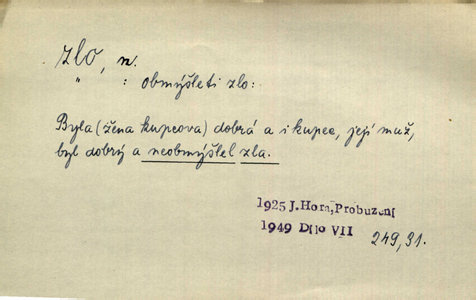 zlo, n.
" : obmýšleti zlo:
Byla (žena kupcova) dobrá a i kupec, její muž,
byl dobrý a neobmýšlel zla.
1925 J.Hora,Probuzení
1949 Dílo VII
249,31.